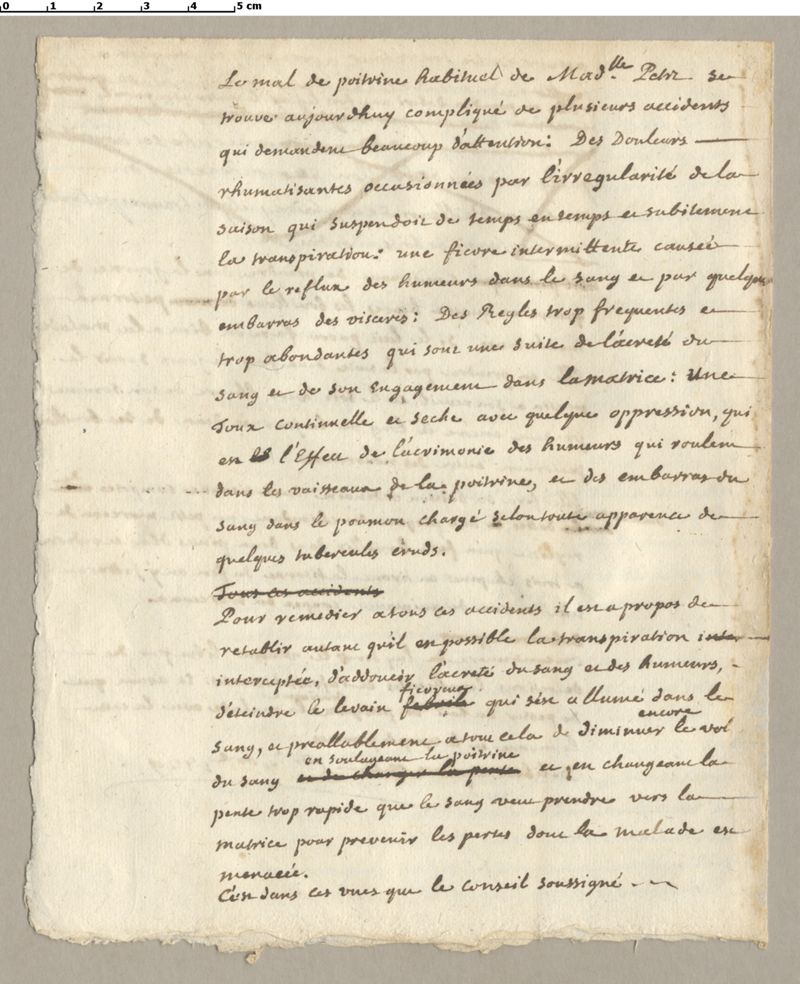 0 1 2 3 4 5 cm
Le mal de poitrine habituel de Mad.lle Petr se
trouve aujourdhuy compliqué de plusieurs accidents
qui demandent beaucoup d'attention: Des Douleurs
rhumatisantes occasionnées par l'irregularité de la
saison qui suspendoit de temps en temps et subitement
la transpiration: une fievre intermittente causée
par le reflux des humeurs dans le sang et par quelques
embarras des visceres: Des Regles trop frequentes et
trop abondantes qui sont une suite de l'âcreté du
sang et de son Engagement dans la matrice: Une
Toux continuelle et seche avec quelque oppression, qui
est l'Effet de l'âcrimonie des humeurs qui roulent
dans les vaisseaux de la poitrine, et des embarras du
sang dans le poumon chargé selon toute apparence de
quelques tubercules cruds.
Tous ces accidents
Pour remedier a tous ces accidents il est apropos de
retablir autant qu'il est possible la transpiration inter
interceptée, d'addoucir l'âcreté du sang et des humeurs,
fievreux
d'éteindre le levain febrile qui s'est allumé dans le
encore
sang, et preallablement a tout cela de diminuer le vol
en soulageant la poitrine
du sang et de changer la pente et en changeant la
pente trop rapide que le sang veut prendre vers la
matrice pour prevenir les pertes dont la malade est
menacée.
C'est dans ces vues que le Conseil soussigné